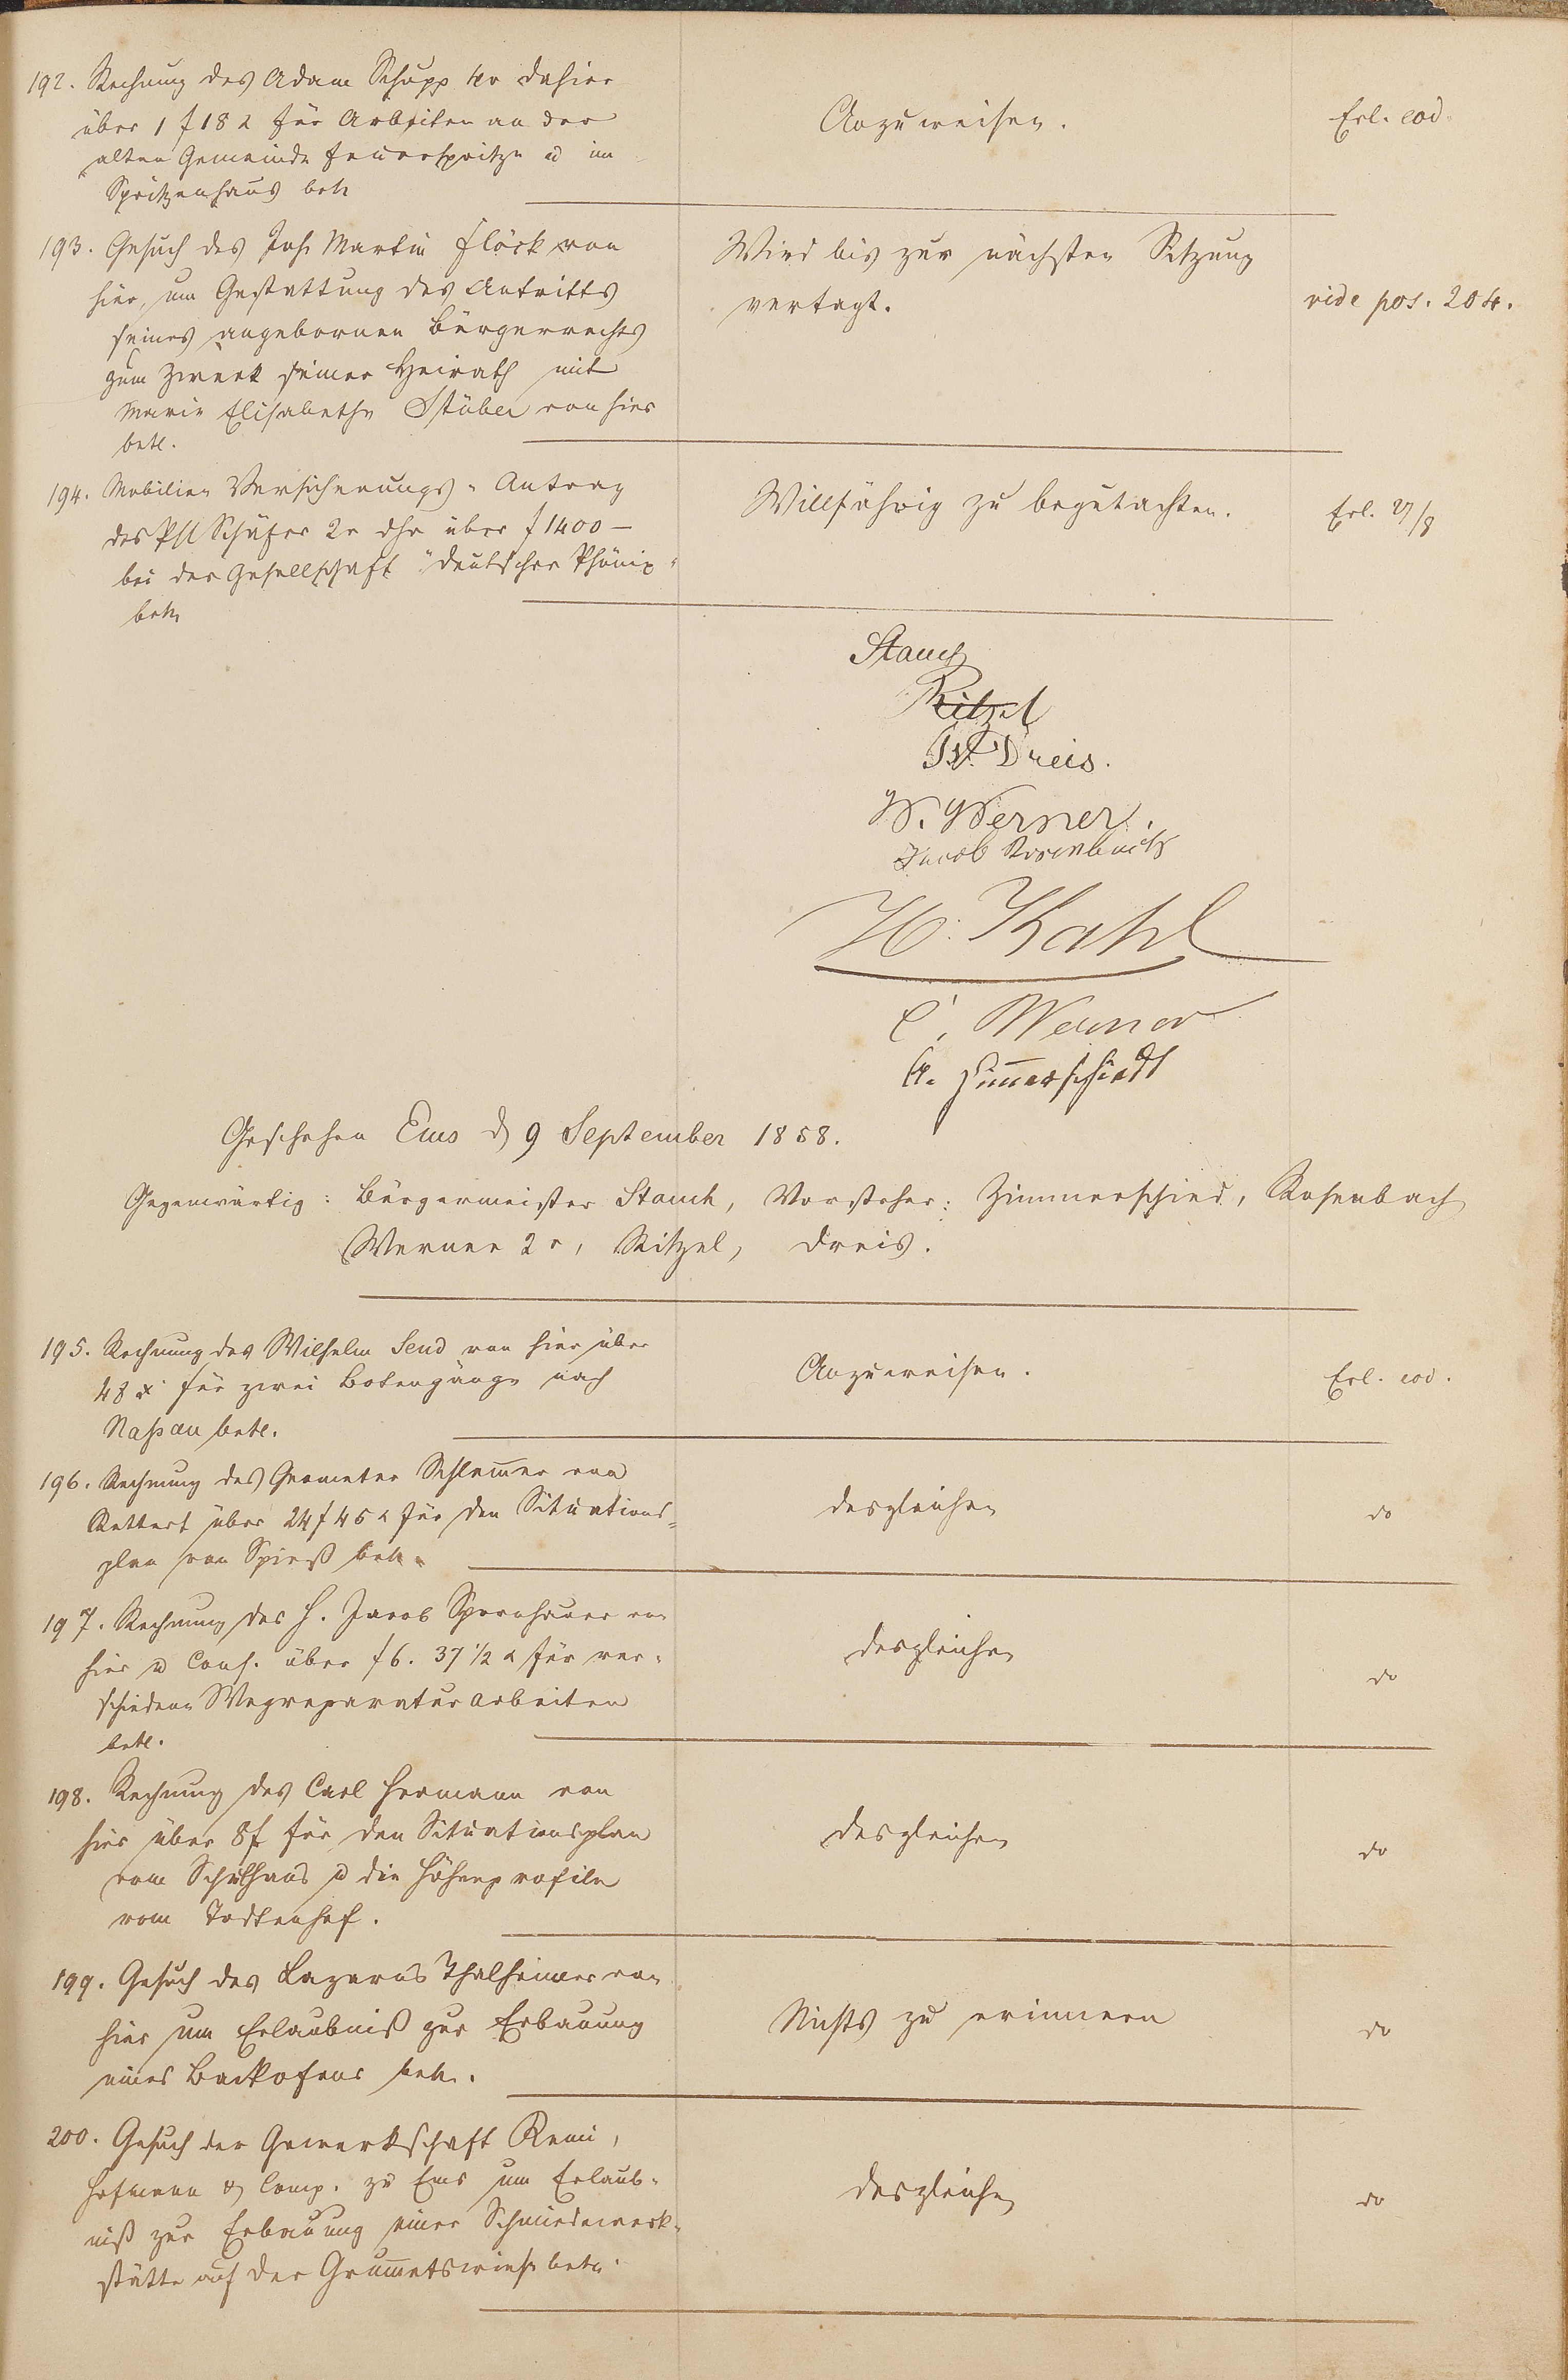 192. Rechnung des Adam Schupp 4r dahier
über 1 f 18 x für Arbeiten an der
alten Gemeinde Feuerspritze u im
Spritzenhaus betr
Anzuweisen.
Erl. eod.
193. Gesuch des Joh Martin Flöck von
hier, um Gestattung des Antritts
seines angebornen Bürgerrechts
zum Zweck seiner Heirath mit
Marie Elisabethe Stüber von hier
betr.
Wird bis zur nächsten Sitzung
vertagt.
vide pos. 204.
194. Mobilien Versicherungs-Antrag
des Phl Schäfer 2r dhr über f 1400 —
bei der Gesellschaft "deutscher Phönix"
betr
Willfährig zu begutachten.
Erl. 27/8
Stauch
Ritzel
Dreis.
W. Werner.
Jacob Rosenbach
H. Kahl
C. Werner
A. Zim̄erschiedt
Geschehen Ems d 9 September 1858.
Gegenwärtig: Bürgermeister Stauch, Vorsteher: Zimmerschied, Rosenbach
Werner 2r, Ritzel, Dreis.
195. Rechnung des Wilhelm Send von hier über
48 x für zwei Botengänge nach
Nassau betr.
Anzuweisen.
Erl. eod.
196. Rechnung des Geometer Schlem̄er von
Kettert über 24 f 45 x für den Situations=
plan von Spieß betr.
desgleichen
do
197. Rechnung des H. Jacob Spornhauer von
hier u Cons. über f 6. 37 1/2 x für ver-
schiedene Wegreparaturarbeiten
betr.
desgleichen
do
198. Rechnung des Carl Hermann von
hier über 8 f für den Situationsplan
vom Schulhaus u die Höhenprofile
vom Todtenhof.
desgleichen
do
199. Gesuch des Lazarus Thalheimer von
hier um Erlaubniß zur Erbauung
eines Backofens betr.
Nichts zu erinnern
do
200. Gesuch der Gewerkschaft Remi,
Hofmann & Comp. zu Ems um Erlaub-
niß zur Erbauung einer Schmiedewerk-
stätte auf der Grum̄etswiese betr.
desgleichen
do